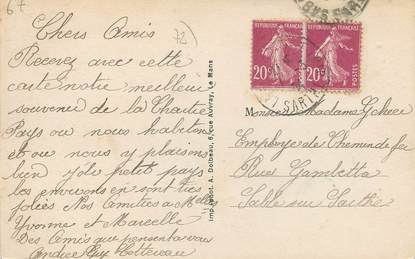 67
72
Chers Amis
Recevez avec cette
carte notre meilleur
souvenir de la Chartre
Pays ou nous habitons
et ou nous y plaisons
bien jolie petit pays
les environs en sont très
jolies Nos Amitiés a Melle
Yvonne et Marcelle
Des Amis que pensent a vous
Andrée Guy
Imp. Phot. A. Dolbeau, 6, rue Auvray, Le Mans
REPUBLIQUE FRANÇAISE
20c
POSTES
REPUBLIQUE FRANÇAISE
20c
POSTES
SARTHE
Monsieur Madame
Employe de Chemin de fer
Rue Gambetta
Sable sur Sarthe